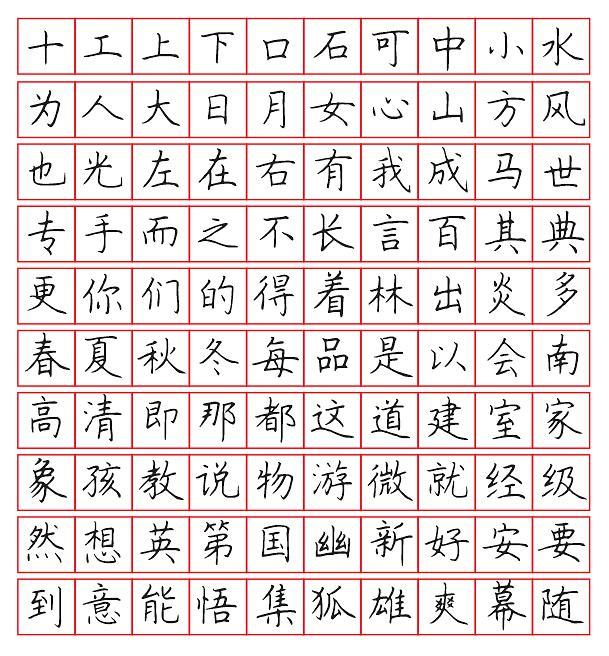 十工上下口石可中小水
为人大日月女心山方风
也光左在右有我成马世
专手而之不长言百其典
更你们的得着林出炎多
春夏秋冬每品是以会南
高清即那都这道建室家
象孩教说物游微就经级
然想英第国幽新好安要
到意能悟集狐雄爽幕随